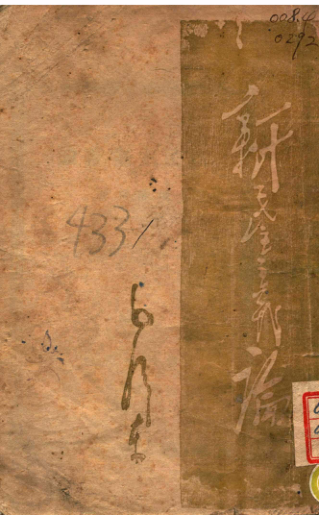 008.4
0292
新民主主義論
4331
毛澤东